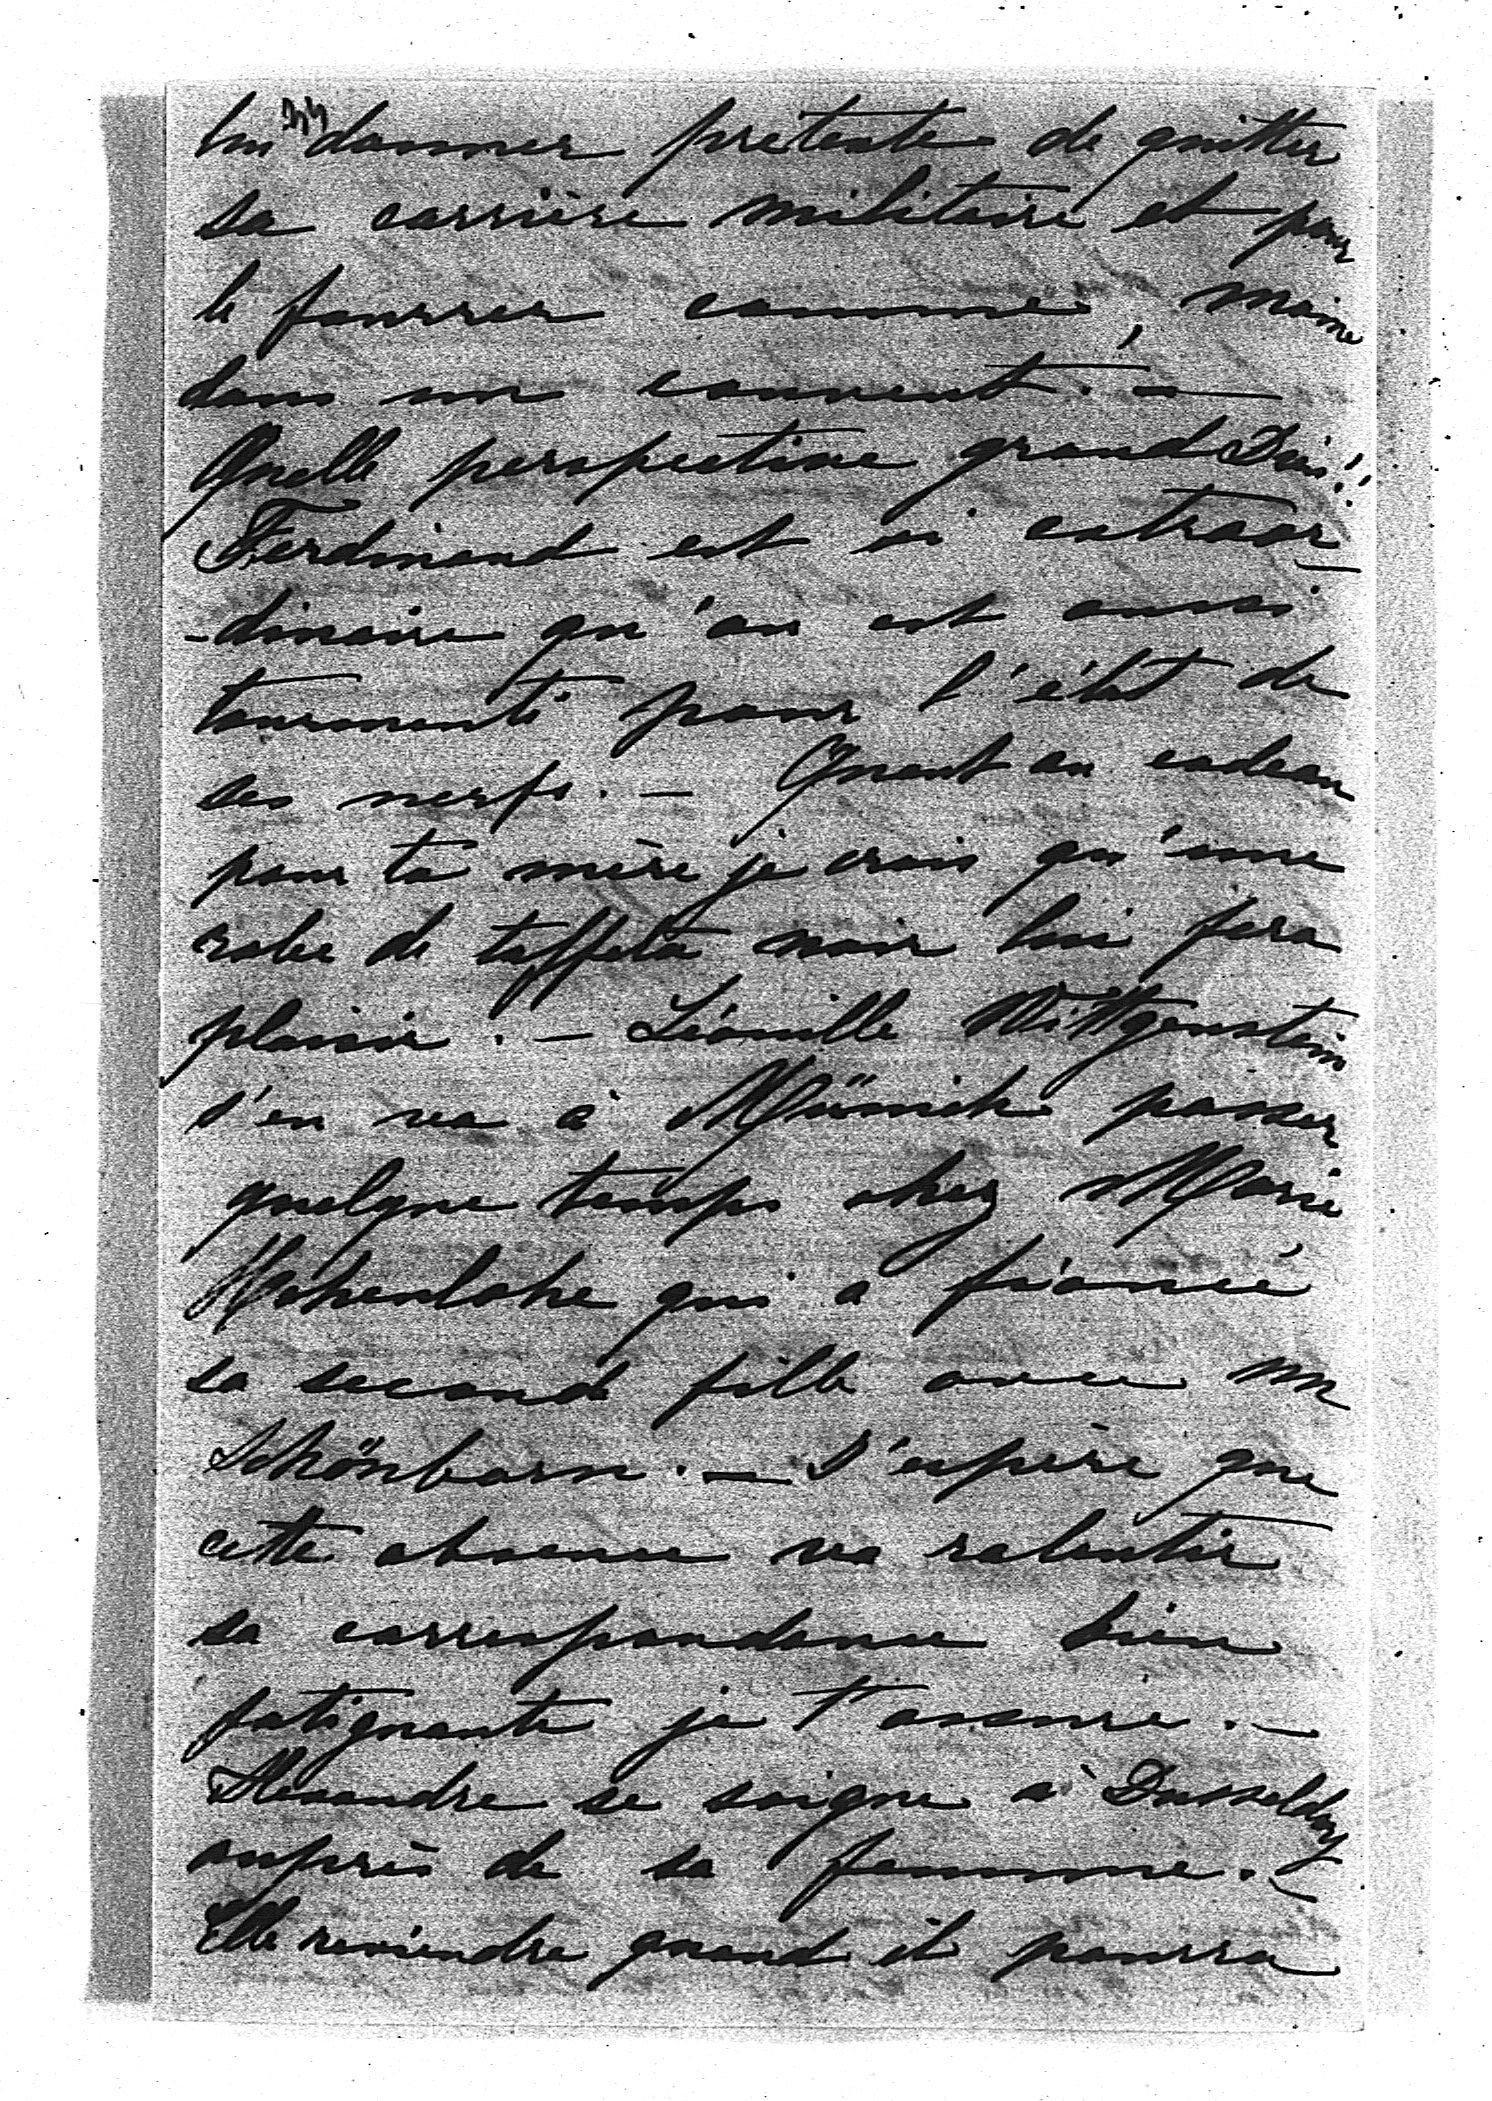 lui donner pretexte de quitter
sa carrière militaire et pour
le fourrer comme moine
dans un couvent. —
Quelle perspective grand Dieu!!
Ferdinand est si extraor-
-dinaire qu'on est aussi
tourmenté pour l'état de
ses nerfs. — Quant au cadeau
pour ta mère je crois qu'une
robe de taffeta noir lui fera
plaisir. — Léonille Wittgenstein
s'en va à Münich passer
quelque temps chez Marie
Hohenlohe qui a fiancé
sa seconde fille avec un
Schönborn. — J'espère que
cette absence va ralentir
sa correspondance bien
fatignante je t'assure. —
Alexandre se soigne à Dusseldorf
auprès de sa femme. —
Elle reviendra quand il pourra